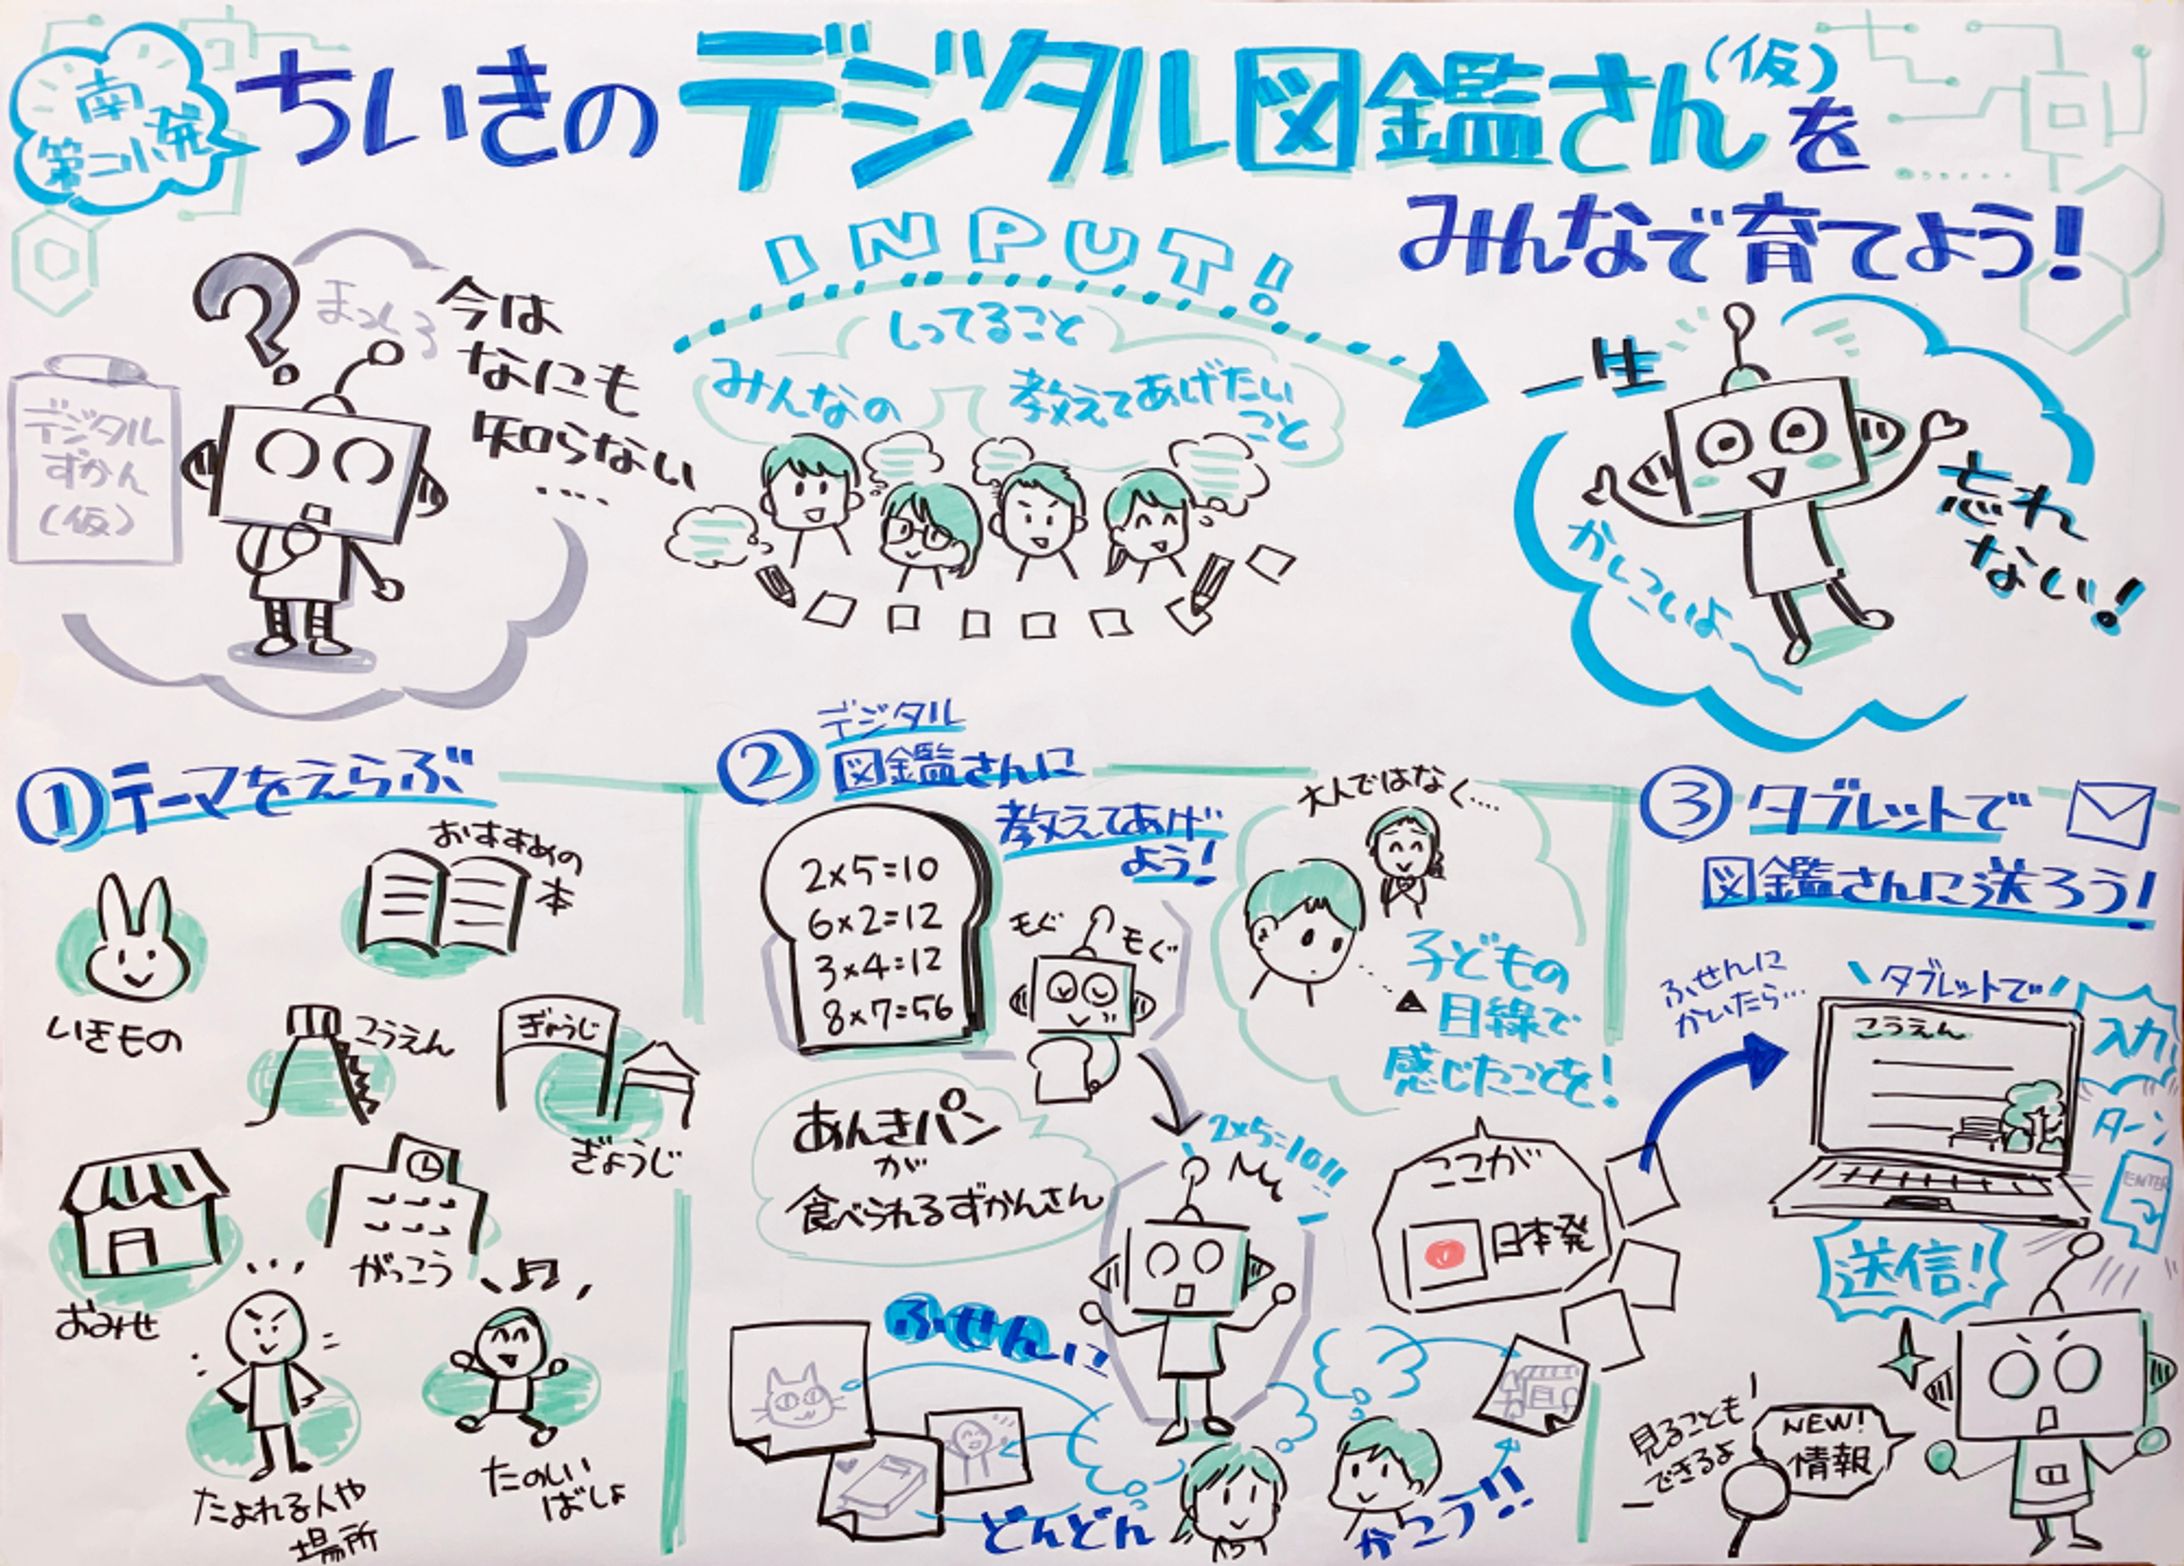 南
第二小発
ちいきのデジタル図鑑さん(仮)を
みんなで育てよう!
デジタル
ずかん
(仮)
まっしろ
今は
なにも
知らない
....
INPUT!
しってること
みんなの
教えてあげたい
こと
一生
忘れ
ない!
かしこいよ〜
①テーマをえらぶ
おすすめの
本
いきもの
こうえん
ぎょうじ
ぎょうじ
おみせ
がっこう
たよれる人や
場所
たのしい
ばしょ
②デジタル
図鑑さんに
教えてあげ
よう!
2×5=10
6×2=12
3×4=12
8×7=56
もぐ
もぐ
あんきパン
が
食べられるずかんさん
2×5=10!!
大人ではなく....
子どもの
目線で
感じたことを!
ここが
日本発
ふせんに
どんどん
かこう!!
③タブレットで
図鑑さんに送ろう!
ふせんに
かいたら...
タブレットで
こうえん
入力!
ターン
ENTER
送信!
見ることも
できるよ
NEW!
情報